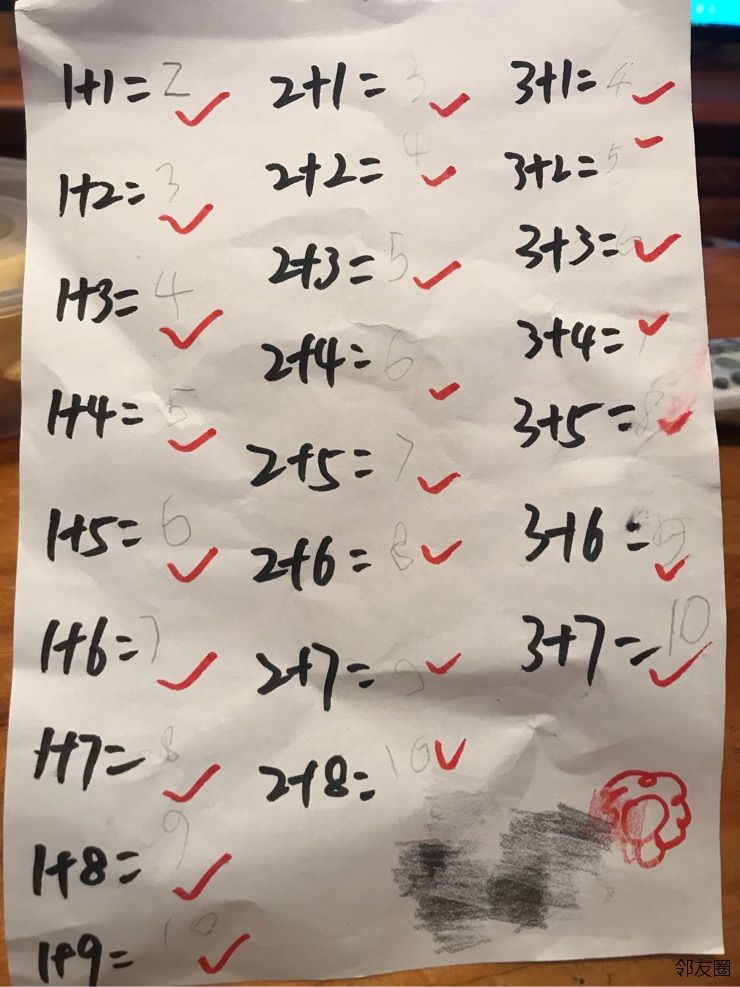 1+1=2 2+1=3 3+1=4
1+2=3 2+2=4 3+2=5
1+3=4 2+3=5 3+3=6
1+4=5 2+4=6 3+4=7
1+5=6 2+5=7 3+5=8
1+6=7 2+6=8 3+6=9
1+7=8 2+7=9 3+7=10
1+8=9 2+8=10
1+9=10
邻友圈